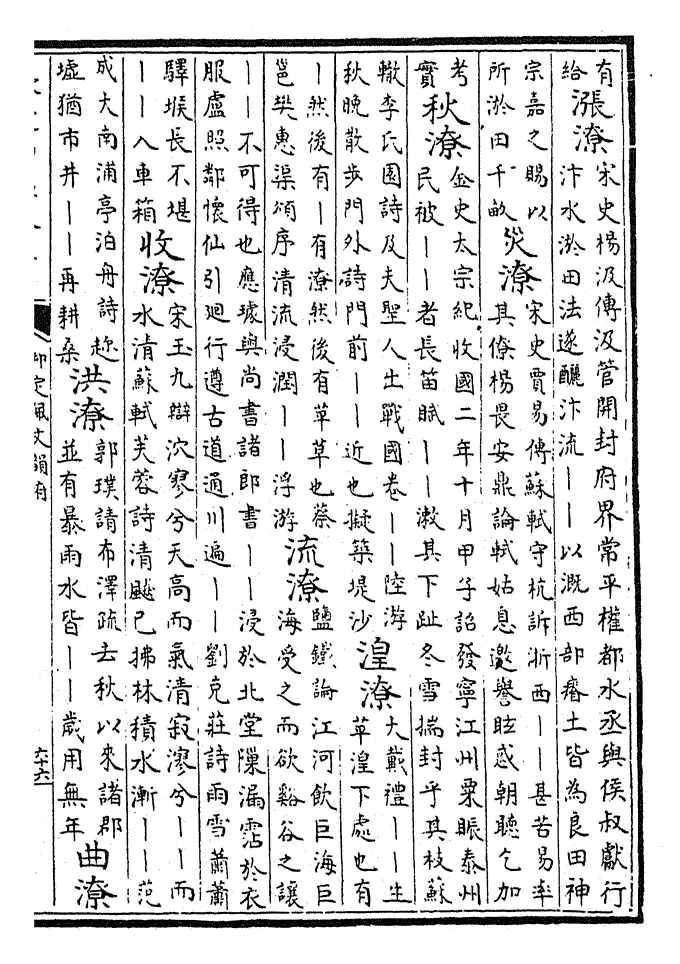 有
給
漲潦
宋史楊汲傳汲管開封府界常平權都水丞與侯叔獻行
汴水淤田法遂釃汴流——以溉西部瘠土皆為良田神
宗嘉之賜以
所淤田千畝
災潦
宋史賈易傳蘇軾守杭訴浙西——甚苦易率
其僚楊畏安鼎論軾姑息邀譽眩惑朝聽乞加
考
實
秋潦
金史太宗紀收國二年十月甲子詔發寧江州粟賑泰州
民被——者長笛賦——漱其下趾冬雪揣封乎其枝蘇
轍李氏園詩及夫聖人出戰國卷——陸游
秋晚散步門外詩門前——近也擬築堤沙
湟潦
大戴禮——生
苹湟下處也有
—然後有—有潦然後有草草也蔡
邕樊惠渠頌序清流浸潤——浮游
流潦
鹽鐵論江河飲巨海巨
海受之而欲谿谷之讓
——不可得也應璩與尚書諸郎書——浸於北堂隟漏霑於衣
服盧照鄰懷仙引廻行遵古道通川遍——劉克莊詩雨雪蕭蕭
驛堠長不堪
——入車箱
收潦
宋玉九辯泬寥兮天高而氣清寂漻兮——而
水清蘇軾芙蓉詩清飈已拂林積水漸——范
成大南浦亭泊舟詩趂
墟猶市井——再耕桑
洪潦
郭璞請布澤疏去秋以來諸郡
並有暴雨水皆——歲用無年
曲潦
御定佩文韻府
六十六